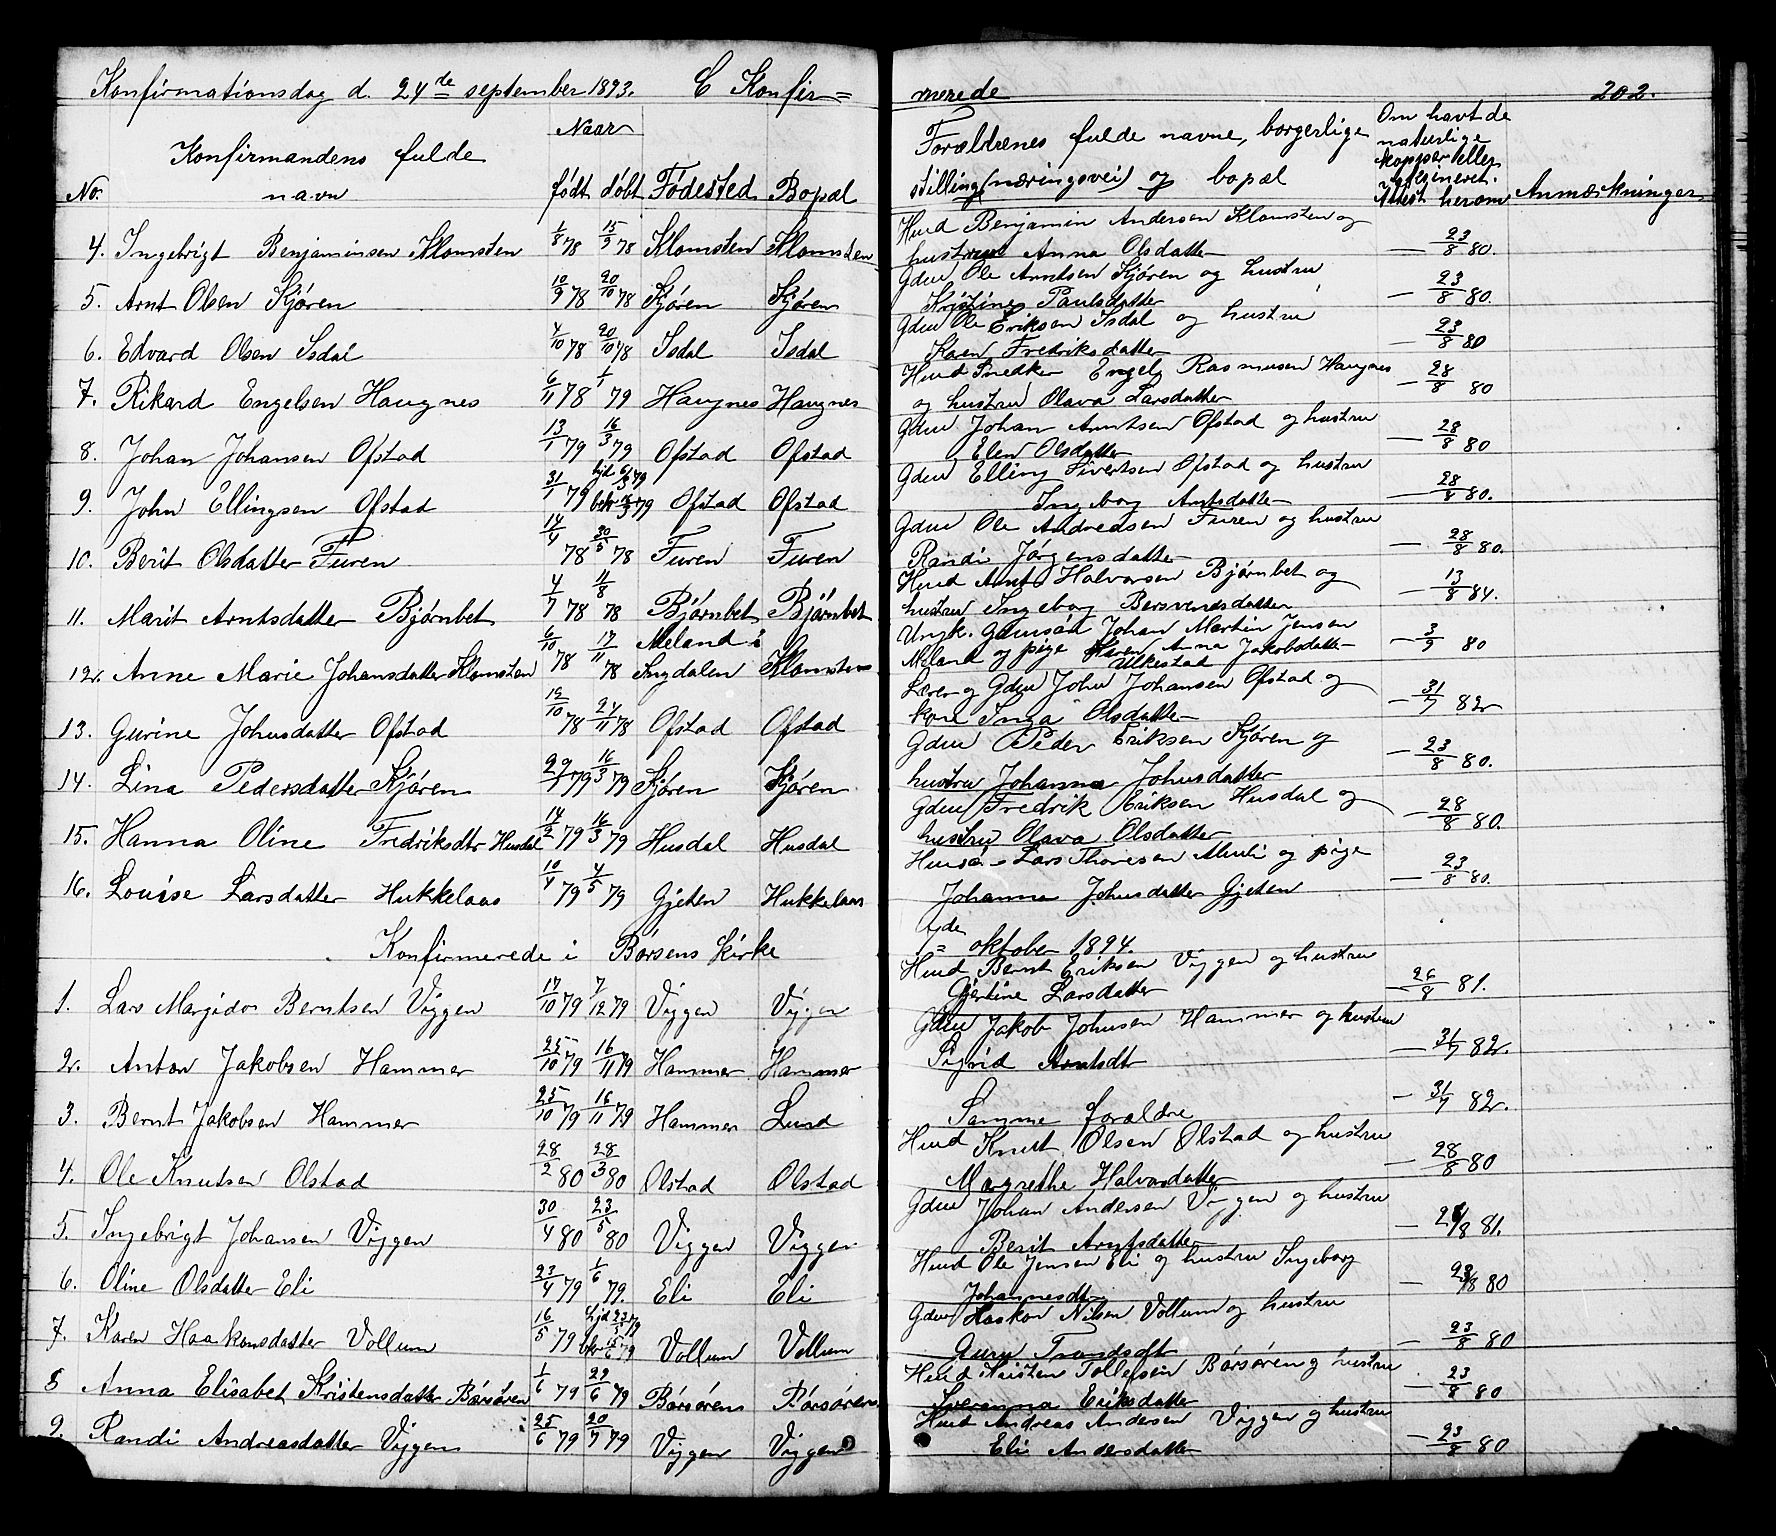 Konfirmationsdag d. 24de september 1893. C Konfir=
Naar
Konfirmandens fulde
No. navn født døbt Fødested Bopæl
4. Ingebrigt Benjaminsen Klomsten 1/8 78 15/9 78 Klomsten Klomsten
5. Arnt Olsen Kjøren 10/9 78 20/10 78 Kjøren Kjøren
6. Edvard Olsen Isdal 4/10 78 20/10 78 Isdal Isdal
7. Rikard Engelsen Haugnes 6/11 78 1/1 79 Haugnes Haugnes
8. Johan Johansen Ofstad 13/1 79 16/3 79 Ofstad Ofstad
9. John Ellingsen Ofstad 31/1 79 79 Ofstad Ofstad
10. Berit Olsdatter Furen 14/4 78 30/5 78 Furen Furen
11. Marit Arntsdatter Bjørnbet 4/7 78 11/8 78 Bjørnbet Bjørnbet
12. Anne Marie Johansdatter Klomsten 6/10 78 17/11 78 Meland i Ingdalen Klomsten
13. Gurine Johnsdatter Ofstad 12/10 78 24/11 78 Ofstad Ofstad
14. Lina Pedersdatter Kjøren 29/1 79 16/3 79 Kjøren Kjøren
15. Hanna Oline Fredriksdtr Husdal 14/2 79 16/3 79 Husdal Husdal
16. Louise Larsdatter Hukkelaas 10/4 79 4/5 79 Gjeten Hukkelaas
Konfirmerede i Børsens kirke
1. Lars Margido Berntsen Viggen 17/10 79 7/12 79 Viggen Viggen
2. Anton Jakobsen Hammer 25/10 79 16/11 79 Hammer Hammer
3. Bernt Jakobsen Hammer 25/10 79 16/11 79 Hammer Lund
4. Ole Knutsen Olstad 28/2 80 28/3 80 Olstad Olstad
5. Ingebrigt Johansen Viggen 30/4 80 23/5 80 Viggen Viggen
6. Oline Olsdatter Eli 23/4 79 1/6 79. Eli Eli
7. Karen Haakonsdatter Vollum 16/5 79 hjd 23/5 79 bkr 15/6 79 Vollum Vollum
8 Anna Elisabet Kristensdatter Børsøren 1/6 79 29/6 79 Børsøren Børsøren
9. Randi Andreasdatter Viggen 25/6 79 20/7 79 Viggen Viggen
merede 202.
Forældrenes fulde navne, borgerlige
stilling (næringsvei) og bopæl
Om havt de
naturlige
kopper eller
vaksineret.
Attest herom Anmærkninger
Husd Benjamin Andersen Klomsten og
hustru Anna Olsdatter — 23/8 80.
Gdm Ole Arntsen Kjøren og hustru
Kristine Paulsdatter — 23/8 80.
Gdm Ole Eriksen Isdal og hustru
Karen Fredriksdatter — 23/8 80
Husd Snedker Engel Rasmusen Haugnes
og hustru Olava Larsdatter — 28/8 80
Gdm Johan Arntsen Ofstad og hustru
Elen Olsdatter — 28/8 80
Gdm Elling Sivertsen Ofstad og hustru
Ingeborg Arntsdatter — 28/8 80.
Gdm Ole Andreasen Furen og hustru
Randi Jørgensdatter — 28/8 80.
Husd Arnt Halvorsen Bjørnbet og
hustru Ingeborg Bersvendsdatter — 13/8 84.
Ungk. Gdmsøn Johan Martin Jensen
Meland og pige Anna Jakobsdatter — 3/9 80
Ulkestad
Lærer og Gdm John Johansen Ofstad og
kone Inga Olsdatter — 31/7 82
Gdm Peder Eriksen Kjøren og
hustru Johanna Johnsdatter — 23/8 80.
Gdm Fredrik Eriksen Husdal og
hustru Olava Olsdatter — 28/8 80.
Lars Thoresen og pige
Johanna Johnsdatter Gjeten — 23/8 80.
7de oktober 1894.
Husd Bernt Eriksen Viggen og hustru
Gjertine Larsdatter — 26/8 81.
Gdm Jakob Johnsen Hammer og hustru
Sigrid Arntsdt — 31/7 82.
Samme forældre — 31/7 82.
Husd Knut Olsen Olstad og hustru
Margrethe Halvorsdatter — 28/8 80
Gdm Johan Andersen Viggen og hustru
Berit Arntsdatter — 26/8 81.
Husd Ole Jensen Eli og hustru Ingeborg
Johannesdt — 23/8 80
Gdm Haakon Nilsen Vollum og hustru
Guru Trondsdt — 23/8 80
Husd Kristen Tollefsen Børsøren og hustru
Sverianna Eriksdatter — 23/8 80
Husd Andreas Andersen Viggen og hustru
Eli Andersdatter — 23/8 80